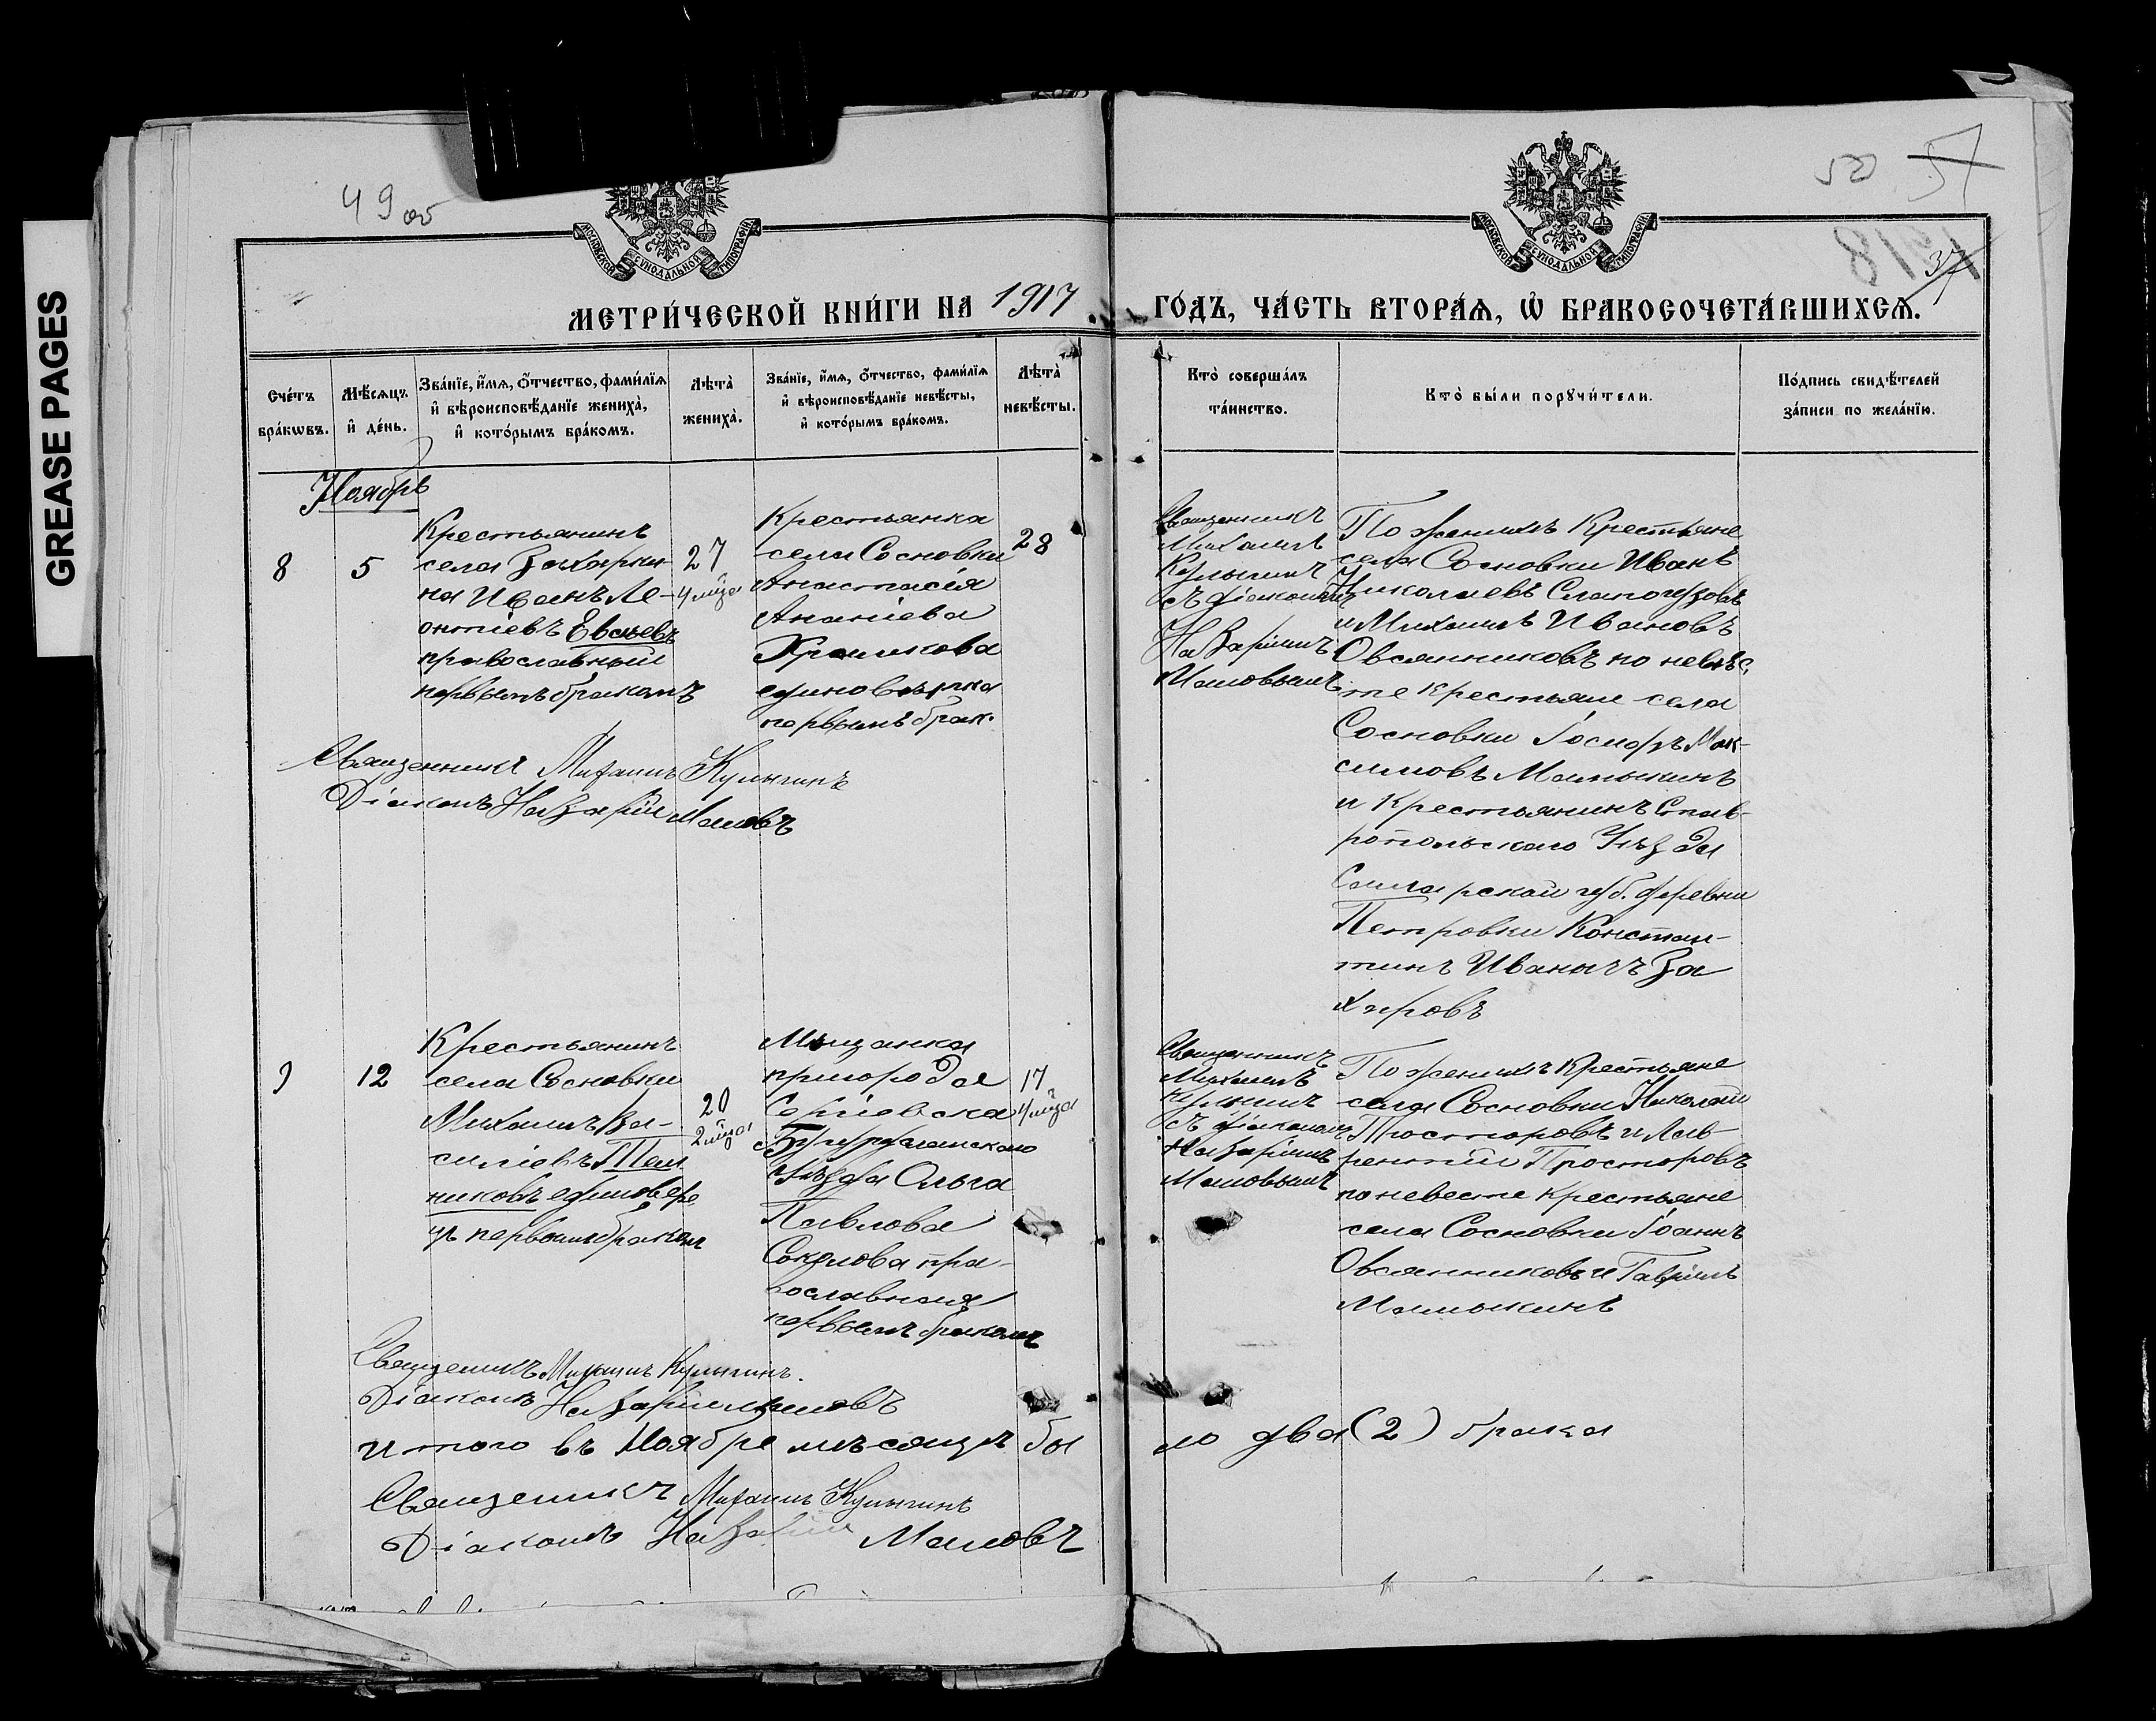 GREASE PAGES
49 об
50 57
37
1918
МОСКОВСКОЙ СѴНОДАЛЬНОЙ ТИПОГРАФІИ
МОСКОВСКОЙ СѴНОДАЛЬНОЙ ТИПОГРАФІИ
МЕТРИ́ЧЕСКОЙ КНИ́ГИ НА 1917 ГО́ДЪ, ЧА́СТЬ ВТОРА́Ѧ, Ѽ БРАКОСОЧЕТА́ВШИХСѦ.
Сче́тъ
бра́кѡвъ.
Мѣ́сѧцъ
и҆ де́нь.
Зва́нїе, и҆́мѧ, ѻ҆́тчество, фами́лїѧ
и҆ вѣроисповѣ́данїе жениха̀,
и҆ кото́рымъ бра́комъ.
Лѣта̀
жениха̀.
Зва́нїе, и҆́мѧ, ѻ҆́тчество, фами́лїѧ
и҆ вѣроисповѣ́данїе невѣ́сты,
и҆ кото́рымъ бра́комъ.
Лѣта̀
невѣ́сты.
Кто̀ соверша́лъ
та́инство.
Кто̀ бы́ли порꙋчи́тели.
По́дпись свидѣ́телей
за́писи по жела́нїю.
Ноябрь
8
5
Крестьянинъ
села Захарки-
на Иванъ Ле-
онтіевъ Евсѣевъ
православный
первымъ бракомъ
27
4 мѣца
Крестьянка
села Сосновки
Анастасія
Ананіева
Храмкова
единовѣрка
первымъ брак.
28
Священникъ
Михаилъ
Кулыгинъ
съ діакономъ
Назаріемъ
Маловымъ
По женихѣ Крестьяне
села Сосновки Иванъ
Николаевъ Слапогузовъ
и Михаилъ Ивановъ
Овсянниковъ по невѣс-
те крестьяне села
Сосновки Іосифъ Мак-
симовъ Мамыкинъ
и Крестьянинъ Став-
ропольскаго Уѣзда
Самарской губ. деревни
Петровки Констан-
тинъ Иванычъ За
харовъ
Священникъ Михаилъ Кулыгинъ
Діаконъ Назарій Маловъ
9
12
Крестьянинъ
села Сосновки
Михаилъ Ва-
силіевъ
никовъ единовере-
цъ первымъ бракомъ
20
2 мѣца
Мѣщанка
пригорода
Сергіевска
Бугурусланскаго
Уѣзда Ольга
Павлова
Соколова пра-
вославная
первымъ бракомъ
17
4 мѣца
Священникъ
Михаилъ
Кулыгинъ
съ діакономъ
Назаріемъ
Маловымъ
По женихѣ Крестьяне
села Сосновки Николай
Просторовъ и Лав-
рентій Просторовъ
по невесте крестьяне
села Сосновки Іоаннъ
Овсянниковъ и Гавріилъ
Мамыкинъ
Священникъ Михаилъ Кулыгинъ.
Діаконъ Назарій Маловъ
Итого въ Ноябре мѣсяцѣ бы ло два (2) брака
Священникъ Михаилъ Кулыгинъ
Діаконъ Назарій Маловъ